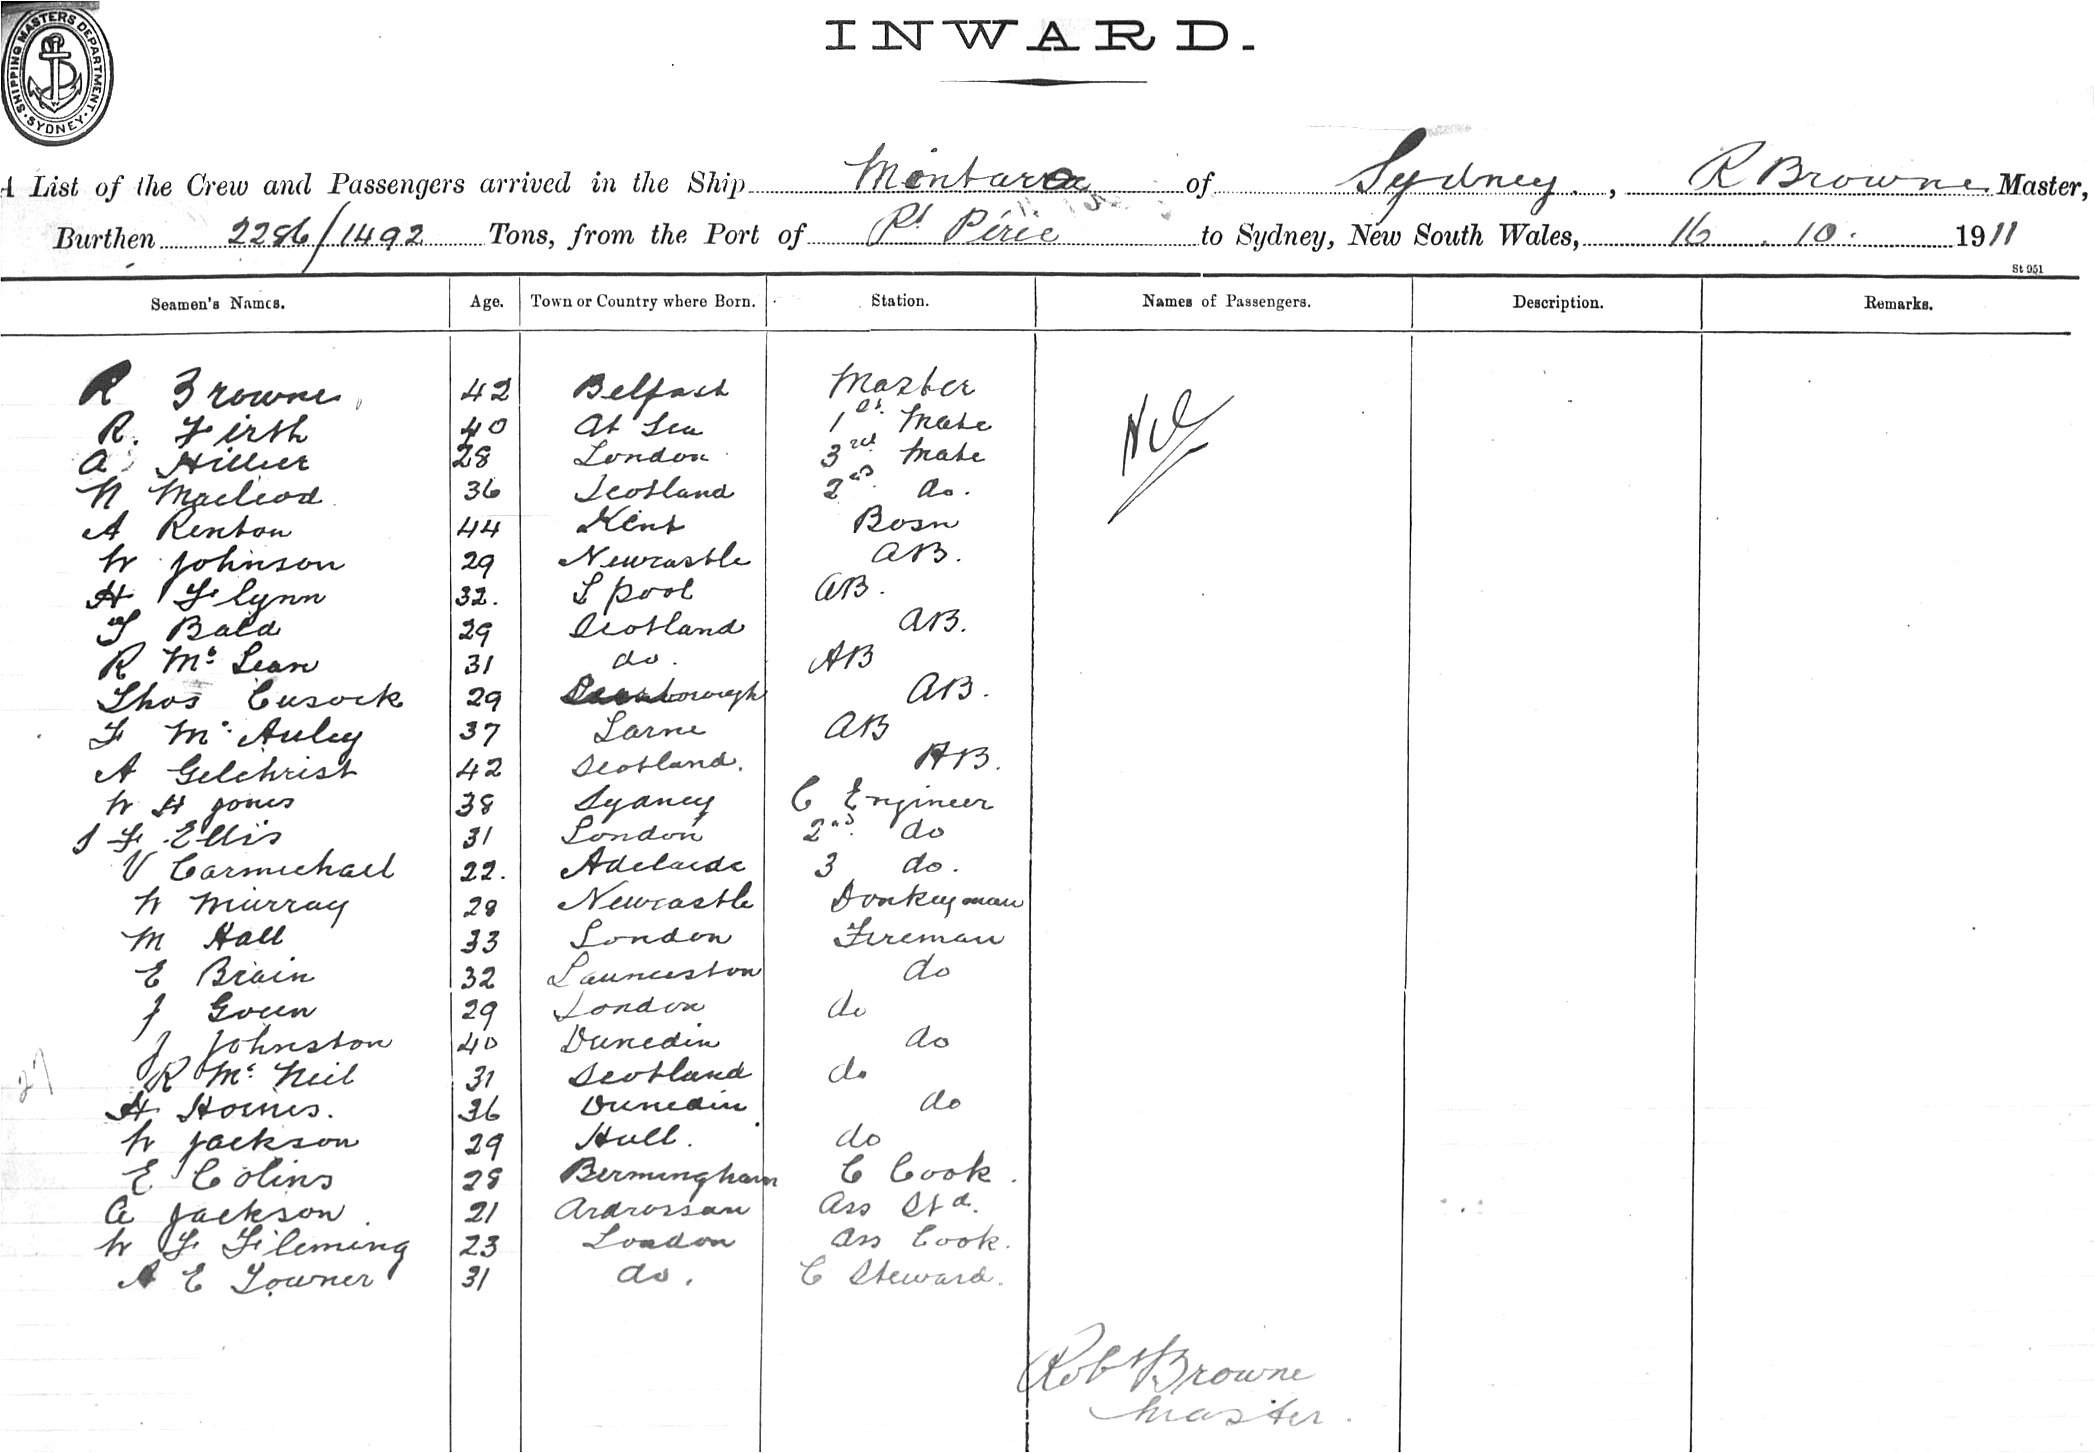 SHIPPING MASTERS DEPARTMENT
SYDNEY
INWARD.
A List of the Crew and Passengers arrived in the Ship Montara of Sydney, R Browne Master,
Burthen 2286/1492 Tons, from the Port of Pt Pirie to Sydney, New South Wales, 16 . 10 . 1911
St 951
Seamen's Names. Age. Town or Country where Born. Station. Names of Passengers. Description. Remarks.
R Browne 42 Belfast Master Nil
R. Firth 40 At Sea 1st Mate
A Hillier 28 London 3rd Mate
N Macleod 36 Scotland 2nd do.
A Renton 44 Kent Bosn
W Johnson 29 Newcastle AB.
H Flynn 32. L pool AB.
T Bald 29 Scotland AB.
R Mc Lean 31 do. AB
Thos Cusock 29 AB.
F Mc Auley 37 Larne AB
A Gilchrist 42 Scotland. AB.
W H Jones 38 Sydney C Engineer
J F Ellis 31 London 2nd. do
V Carmichael 22. Adelaide 3 do.
W Murray 28 Newcastle Donkeyman
M Hall 33 London Fireman
E Brain 32 Launceston do
J Green 29 London do
J Johnston 40 Dunedin do
27
R Mc Neil 31 Scotland do
H 36 Dunedin do
W Jackson 29 Hull. do
E Colins 28 Bermingham C Cook.
A Jackson 21 Ardrossan Ass Std.
W F Fleming 23 London Ass Cook.
A E Towner 31 do. C Steward.
Robt Browne
Master.